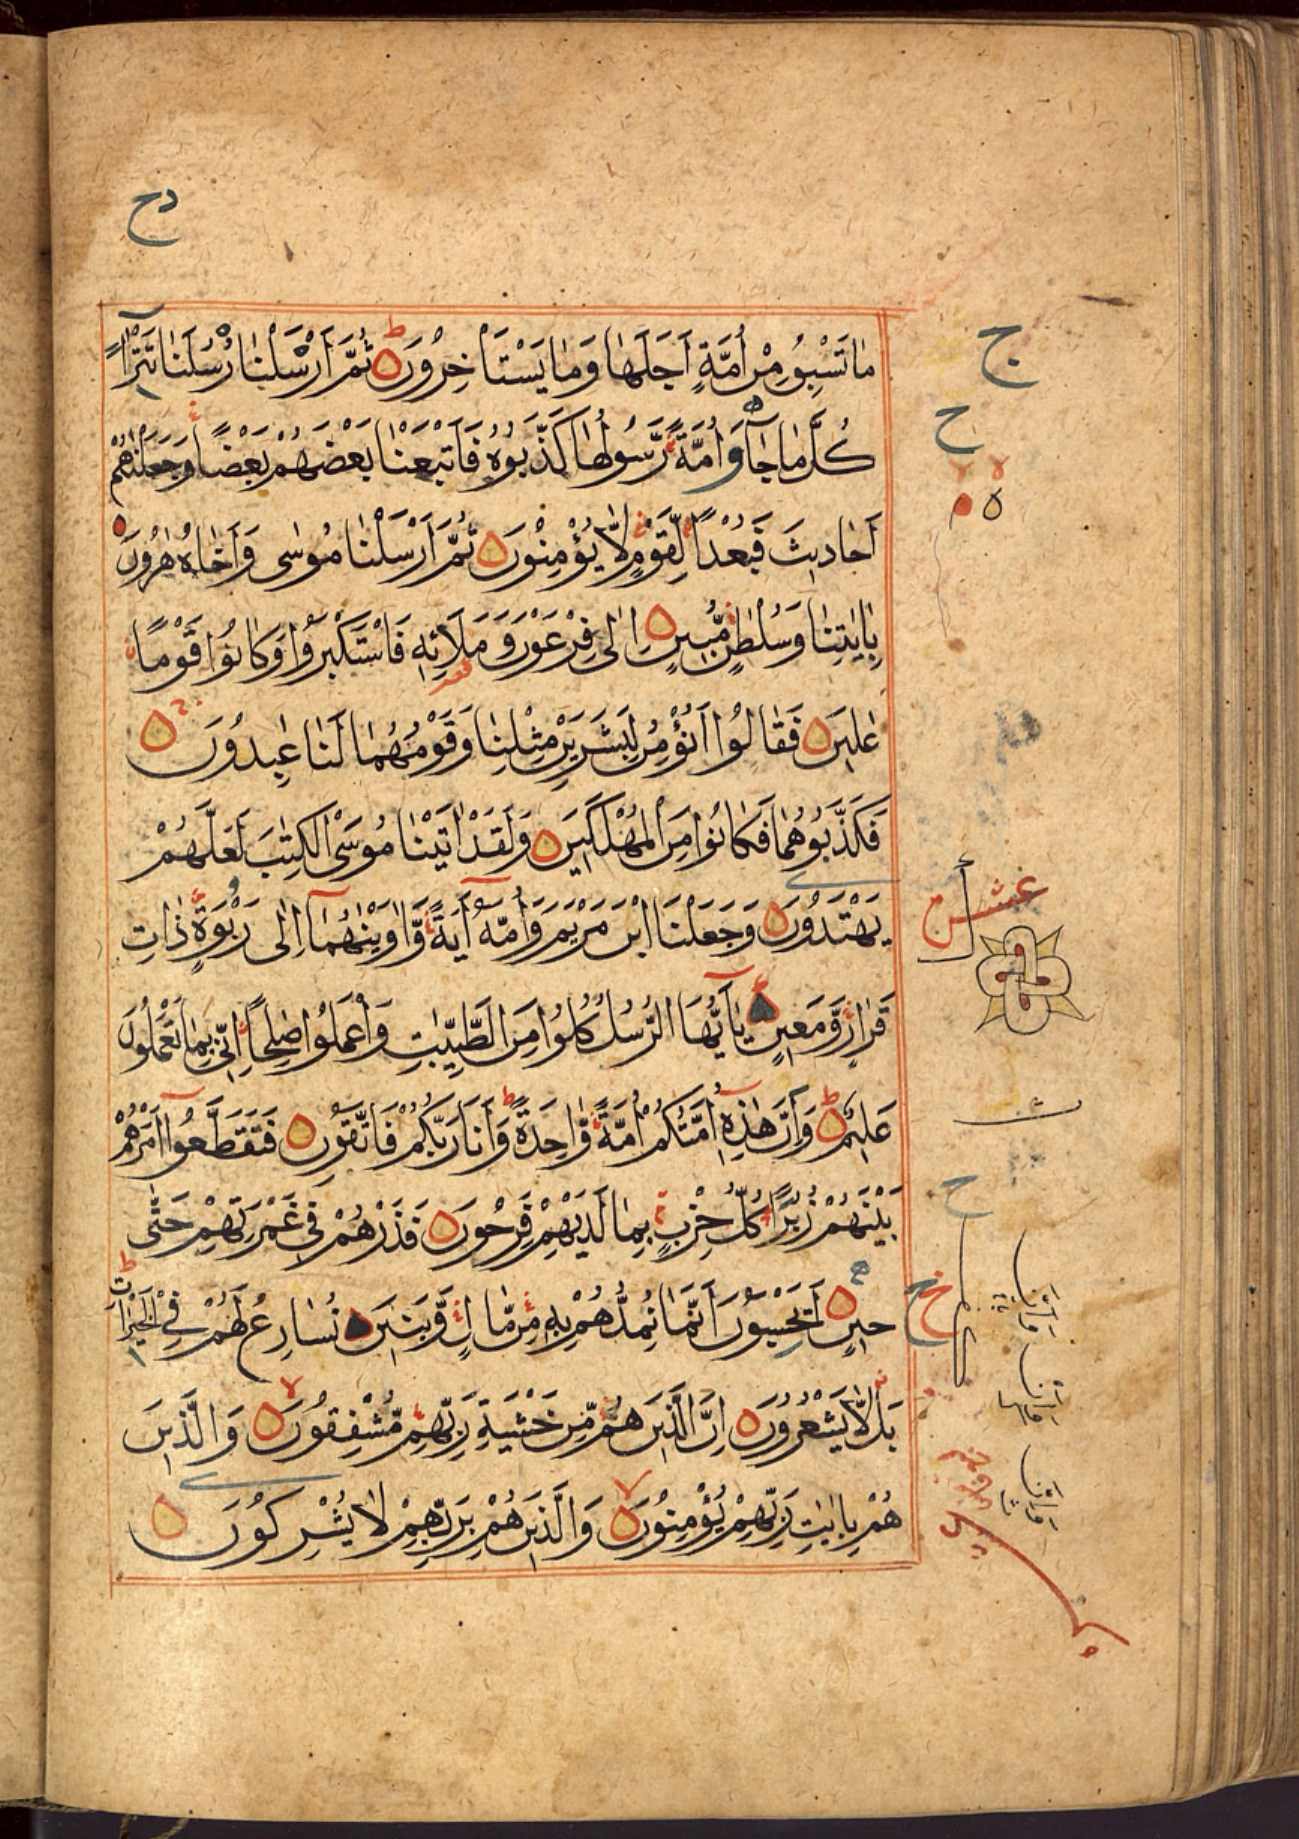 مَا تَسْبِقُ مِنْ أُمَّةٍ أَجَلَهَا وَمَا يَسْتَأْخِرُونَ ثُمَّ أَرْسَلْنَا رُسُلَنَا تَتْرًا
كُلَّ مَا جَآءَ أُمَّةً رَّسُولُهَا كَذَّبُوهُ فَأَتْبَعْنَا بَعْضَهُمْ بَعْضًا وَجَعَلْنٰهُمْ
أَحَادِيثَ فَبُعْدًا لِّقَوْمٍ لَّا يُؤْمِنُونَ ثُمَّ أَرْسَلْنَا مُوسٰى وَأَخَاهُ هٰرُونَ
بِاٰيٰتِنَا وَسُلْطٰنٍ مُّبِينٍ اِلٰى فِرْعَوْنَ وَمَلَائِهٖ فَاسْتَكْبَرُوا وَكَانُوا قَوْمًا
عٰلِينَ فَقَالُوا أَنُؤْمِنُ لِبَشَرَيْنِ مِثْلِنَا وَقَوْمُهُمَا لَنَا عٰبِدُونَ
فَكَذَّبُوهُمَا فَكَانُوا مِنَ الْمُهْلَكِينَ وَلَقَدْ اٰتَيْنَا مُوسَى الْكِتٰبَ لَعَلَّهُمْ
يَهْتَدُونَ وَجَعَلْنَا ابْنَ مَرْيَمَ وَأُمَّهُ اٰيَةً وَّاٰوَيْنٰهُمَآ اِلٰى رَبْوَةٍ ذَاتِ
قَرَارٍ وَّمَعِينٍ يٰٓأَيُّهَا الرُّسُلُ كُلُوا مِنَ الطَّيِّبٰتِ وَاعْمَلُوا صٰلِحًا اِنِّي بِمَا تَعْمَلُونَ
عَلِيمٌ وَاِنَّ هٰذِهٖ أُمَّتُكُمْ أُمَّةً وَّاحِدَةً وَأَنَا رَبُّكُمْ فَاتَّقُونِ فَتَقَطَّعُوٓا أَمْرَهُمْ
بَيْنَهُمْ زُبُرًا كُلُّ حِزْبٍ بِمَا لَدَيْهِمْ فَرِحُونَ فَذَرْهُمْ فِي غَمْرَتِهِمْ حَتّٰى
حِينٍ أَيَحْسَبُونَ أَنَّمَا نُمِدُّهُمْ بِهٖ مِنْ مَّالٍ وَّبَنِينَ نُسَارِعُ لَهُمْ فِي الْخَيْرَاتِ
بَلْ لَّا يَشْعُرُونَ اِنَّ الَّذِينَ هُمْ مِّنْ خَشْيَةِ رَبِّهِمْ مُّشْفِقُونَ وَالَّذِينَ
هُمْ بِاٰيٰتِ رَبِّهِمْ يُؤْمِنُونَ وَالَّذِينَ هُمْ بِرَبِّهِمْ لَا يُشْرِكُونَ
ج
ح
عشر
ح